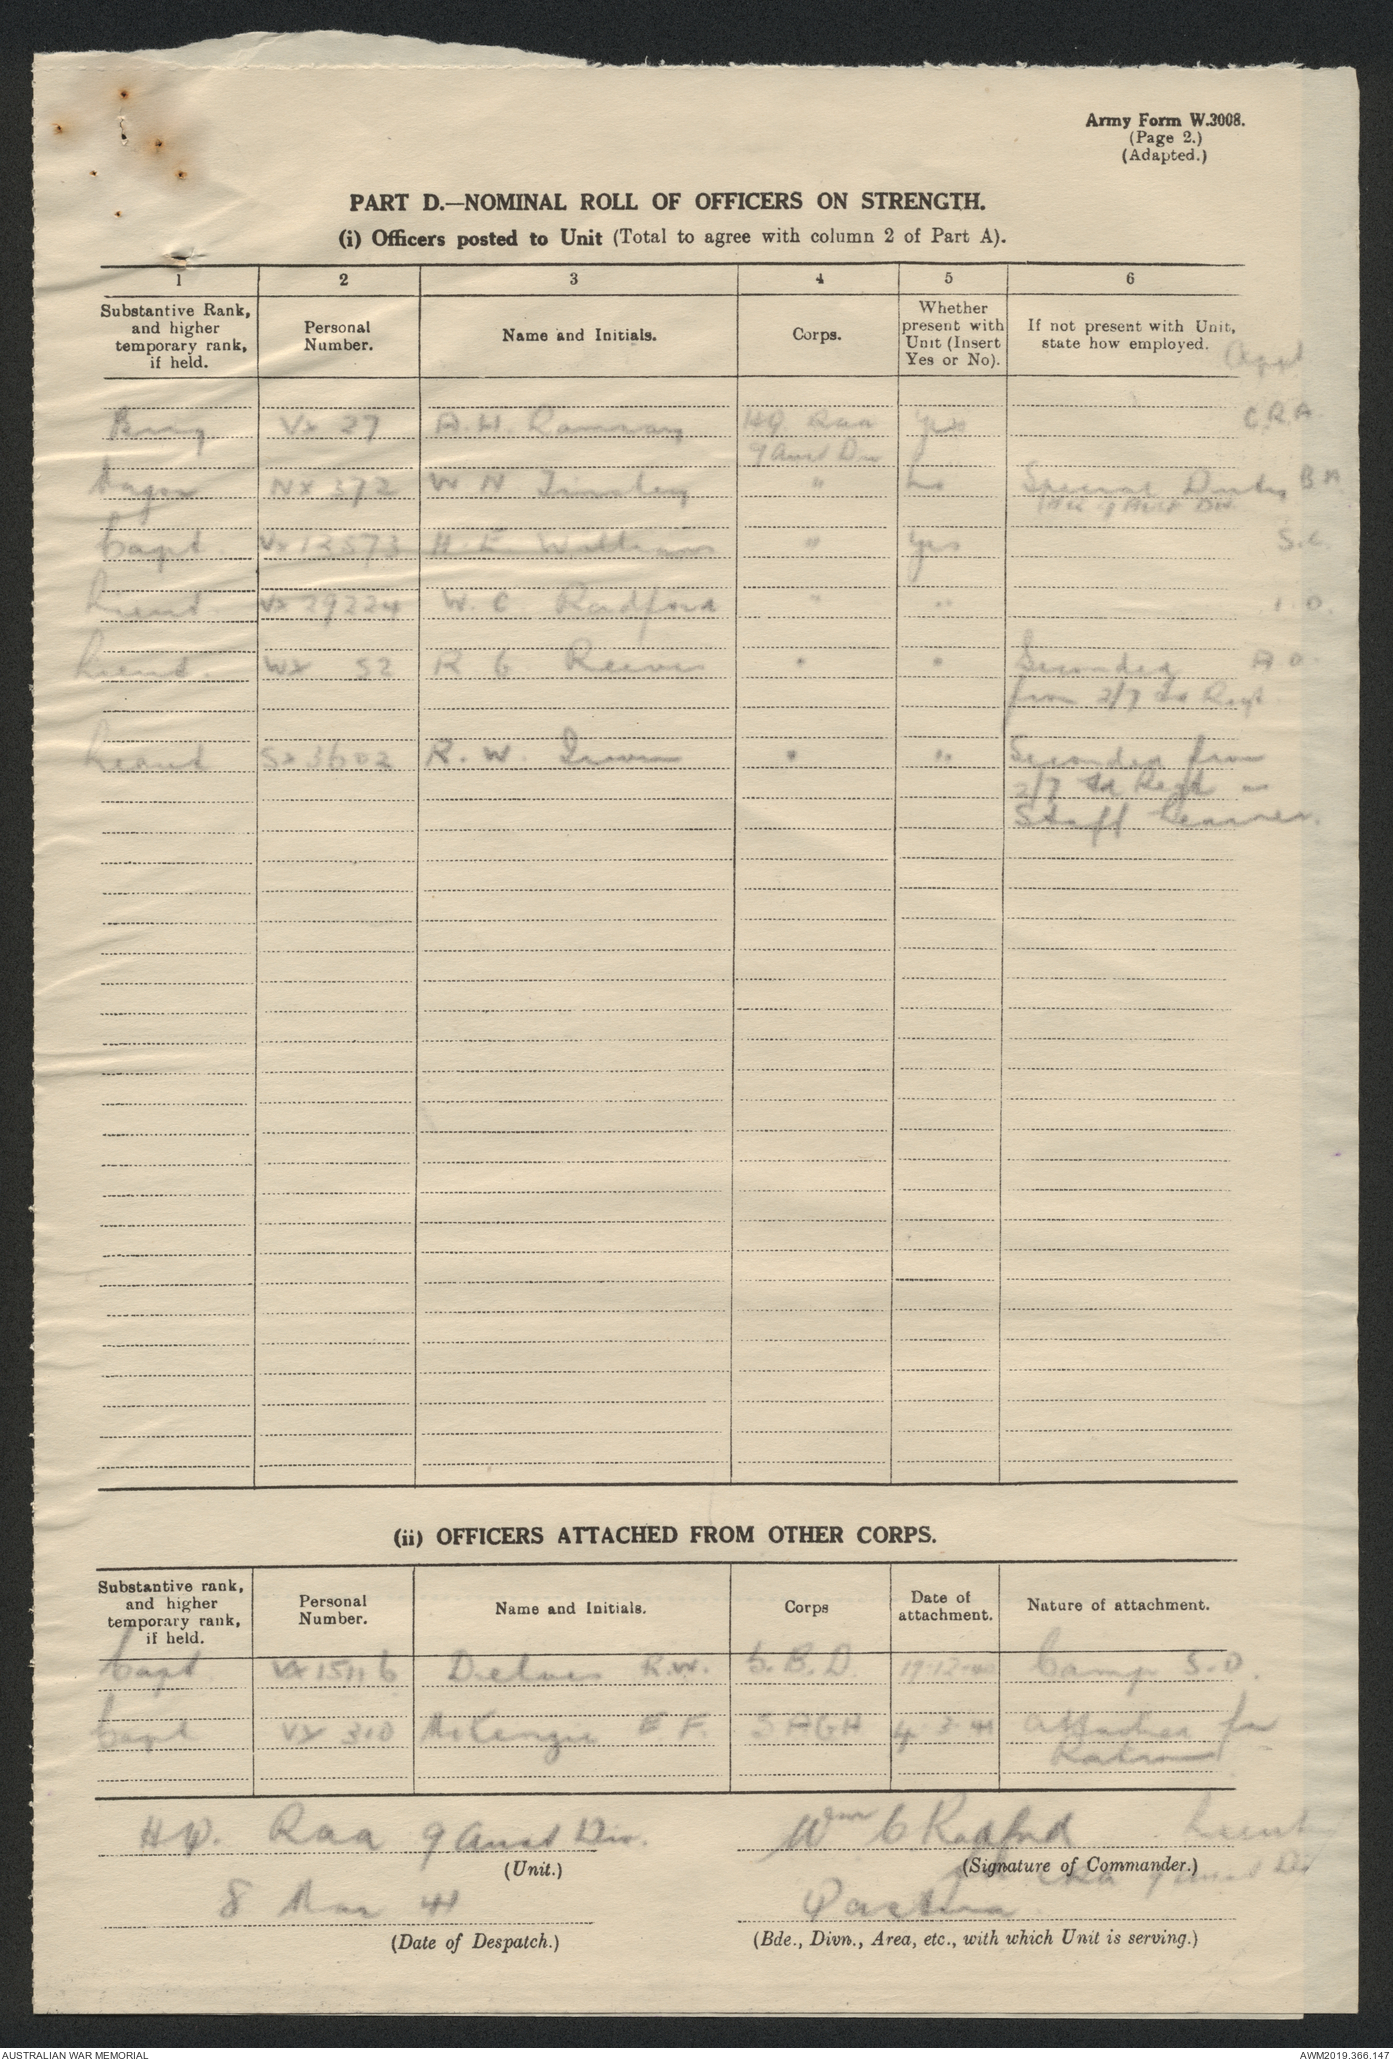 Army Form W.3008.
(Page 2.)
(Adapted.)
PART D.—NOMINAL ROLL OF OFFICERS ON STRENGTH.
(i) Officers posted to Unit (Total to agree with column 2 of Part A).
1 2 3 4 5 6
Substantive Rank, and higher temporary rank, if held.
Personal Number.
Name and Initials.
Corps.
Whether present with Unit (Insert Yes or No).
If not present with Unit, state how employed.
Appt
Brig. VX 27 A.H. Ramsay HQ. Raa Yes C.R.A.
9 Aust Div
Major NX 372 W N Tinsley " No Special Duty B M
HQ 9 Aust Div
Capt. VX 12573 H. E. Williams " Yes S.C.
Lieut. VX 29224 W. C. Radford " " I. O.
Lieut. WX 52 R G Reeves " " Seconded A O.
from 2/7 Fd Regt
Lieut SX 3602 R. W. Irwin " " Seconded from
2/7 Fd Regt -
Staff Learner.
(ii) OFFICERS ATTACHED FROM OTHER CORPS.
Substantive rank, and higher temporary rank, if held.
Personal Number.
Name and Initials.
Corps
Date of attachment.
Nature of attachment.
Capt. VX 15116 R.W. S.B.D. Camp S.O.
Capt VX 310 McKenzie E. F. 4. 3. 41 Attached for
Rations
HQ. Raa 9 Aust Div. Wm C Radford Lieut
(Unit.)
(Signature of Commander.)
CRA 9 Aust Div
8 Mar 41
(Date of Despatch.)
(Bde., Divn., Area, etc., with which Unit is serving.)
AUSTRALIAN WAR MEMORIAL
AWM2019.366.147